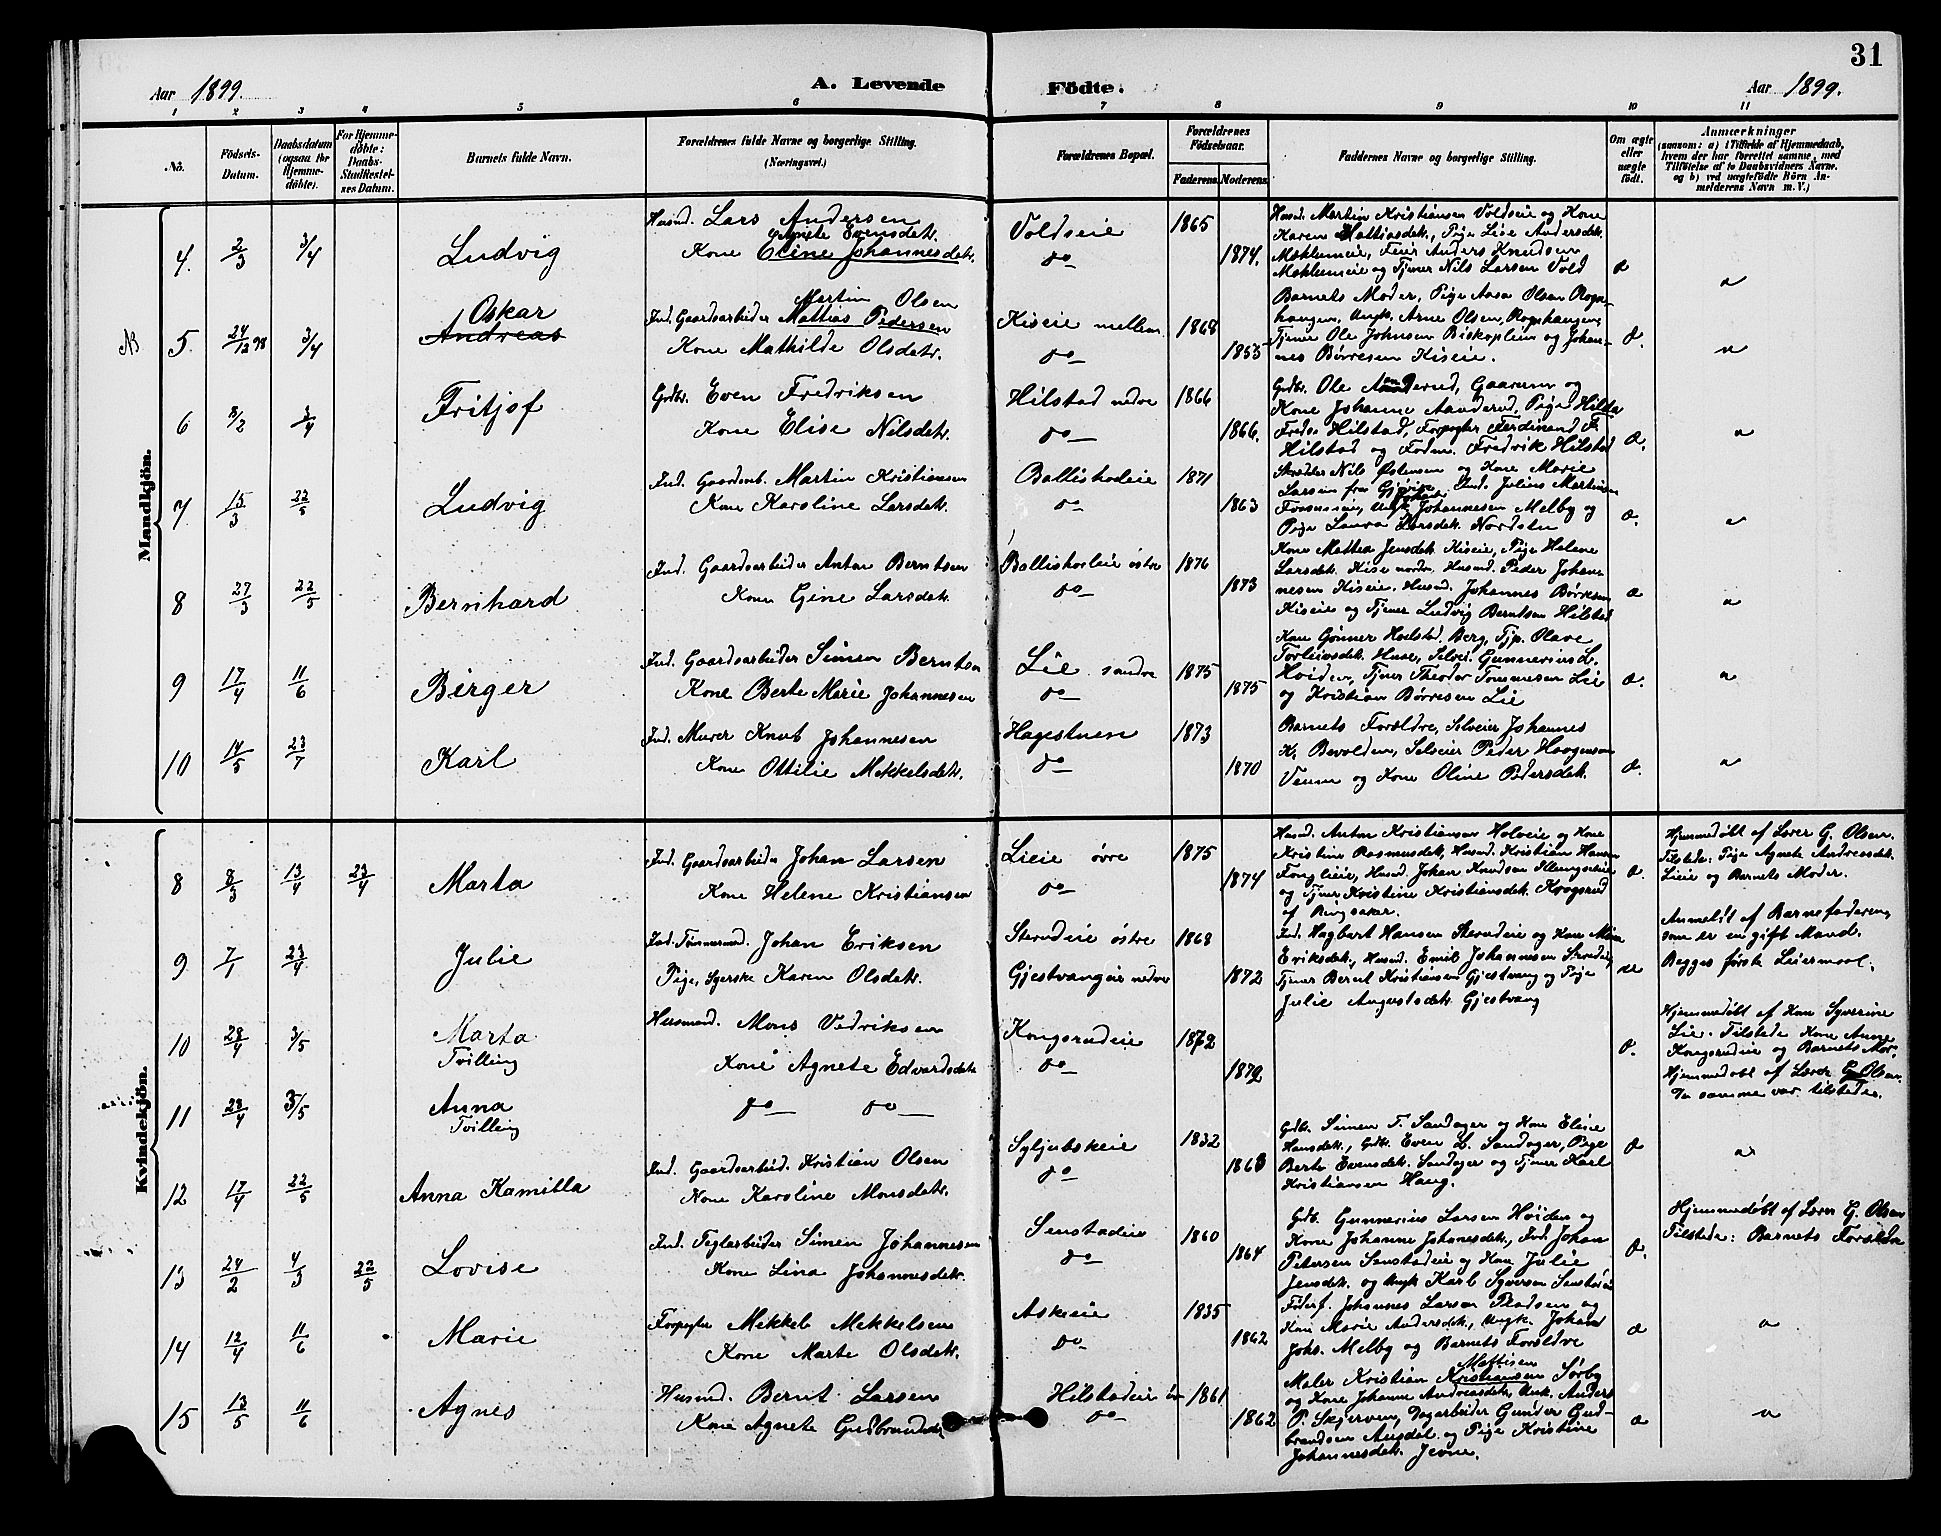 31
Aar 1899. A. Levende Födte. Aar 1899.
1 2 3 4 5 6 7 8 9 10 11
No.
Födsels-Datum.
Daabsdatum (ogsaa for Hjemmedöbte).
For Hjemmedöbte: Daabs-Stadfæstelses Datum.
Barnets fulde Navn.
Forældrenes fulde Navne og borgerlige Stilling.
(Næringsvei.)
Forældrenes Bopæl.
Forældrenes Födselsaar.
Faderens. Moderens.
Faddernes Navne og borgerlige Stilling.
Om ægte eller uægte födt.
Anmærkninger
(saasom: a) i Tilfælde af Hjemmedaab,
hvem der har forrettet samme, med
Tilföielse af to Daabsvidners Navne.
og b) ved uægtefödte Börn An-
melderens Navn m. V.)
Mandkjön.
4. 2/3 3/4 Ludvig
Husmd. Lars Andersen
Agnete Evensdtr.
Kone Eline Johannesdtr.
Voldseie 1865
do 1874.
Husmd. Martin Kristiansen Voldseie og Kone
Karen Mattiasdtr., Pige Lise Andersdtr.
Mæhlumeie, Feier Anders Knudsen
Mæhlumeie og Tjener Nils Larsen Vold
NB 5. 24/12 98 3/4 Oskar
Andreas
Martin Olsen
Ind. Gaardsarbeider Mattias Pedersen
Kone Mathilde Olsdatr.
Kiseie mellem 1868
do 1855
Barnets Moder, Pige Aasa Olsen Rogn-
haugen, Ungk. Arne Olsen, Rognhaugen,
Tjener Ole Johnsen Biskoplien og Johan-
nes Börresen Kiseie.
6 8/2 3/4 Fritjof
Grdbr. Even Fredriksen
Kone Elise Nilsdtr.
Hilstad nedre 1866
do 1866.
Grdbr. Ole Aanderud, Gaarum og
Kone Johanne Aanderud, Pige Hilda
Fredr. Hilstad, Forpagter Ferdinand F.
Hilstad og Födm. Fredrik Hilstad
7 15/3 22/5 Ludvig
Ind. Gaardsarb. Martin Kristiansen
Kone Karoline Larsdtr.
Ballisholeie 1871
do 1863
Skrædder Nils Östensen og Kone Marie
Larsen fra Gjövig, Ind. Julius Martinsen
Ungk. Johannesen Melby og
Pige Laura Larsdtr. Nordsten
8 27/3 22/5 Bernhard
Ind. Gaardsarbeider Anton Berntsen
Kone Gine Larsdtr.
Ballishoeleie östre 1876
do 1873
Kone Mattea Jensdtr. Kiseie, Pige Helene
Larsdtr. Kise nordre. Husmd. Peder Johan-
nesen Kiseie, Husmd. Johannes Börresen
Kiseie og Tjener Ludvig Berntsen Hilstad
9 17/4 11/6 Birger
Ind. Gaardsarbeider Simen Berntsen
Kone Berte Marie Johannesen
Lie söndre 1875
do 1875
Kone Gönner Hilstad. Berg, Tjp. Olave
Torleivsdtr. Huse, Selvei. Gunnerius L.
Höiden, Tjener Theodor Tommesen Lie
og Kristian Börresen Lie
10 14/5 23/7 Karl
Ind. Murer Knut Johannesen
Kone Ottilie Mekkelsdtr.
Hagestuen 1873
do 1870
Barnets Forældre, Selveier Johannes
K. Bevolden, Selveier Peder Haagensen
Veum og Kone Oline Pedersdtr.
Kvindekjön.
8 8/3 13/4 23/4 Marta
Ind. Gaardsarbeider Johan Larsen
Kone Helene Kristiansen
Lieie övre 1875
do 1874
Husmd. Anton Kristiansen Holveie og Kone
Kristine Rasmusdtr., Husmd. Kristian Hansen
Fonglieie, Husmd. Johan Knudsen Illengseie
og Tjener Kristine Kristiansdtr. Krogsrud
af Ringsaker.
Hjemmedöbt af Lærer G. Olsen.
Tilstede: Pige Agnete Andreasdtr.
Lieie og Barnets Moder.
9 7/1 23/4 Julie
Ind. Tömmermd. Johan Eriksen
Pige, Syerske Karen Olsdtr.
Sterudeie östre 1868
Gjestvangeie nedre 1872
Ind. Hagbart Hansen Sterudeie og Kone Mina
Eriksdtr., Husmd. Emil Johannsen Sterudeie
Tjener Bernt Kristiansen Gjestvang og Pige
Julie Augustsdtr. Gjestvang
Anmeldt af Barnefaderen,
som er en gift Mand.
Begges förste Leiermaal.
10 28/4 3/5 Marta
Tvilling
Husmand. Mons Vedriksen
Kone Agnete Edvardsdtr.
Kongsrudeie 1872
do 1872
Hjemmedöbt af Kone Syverine
Lie. Tilstede Kone Anne
Kongsrudeie og Barnets Mor.
11 28/4 3/5 Anna
Tvilling
do do
Hjemmedöbt af Lærer G. Olsen.
De samme var tilstede.
12 17/4 22/5 Anna Kamilla
Ind. Gaardsarbeid. Kristian Olsen
Kone Karoline Monsdtr.
Syljubskeie 1832
do 1863
Gdb. Simen T. Sandager og Kone Elise
Hansdtr., Gdb. Even L. Sandager, Pige
Berte Evensdtr. Sandager og Tjener Karl
Kristiansen Haug.
13 24/2 4/3 22/5 Lovise
Ind. Teglarbeider Simen Johannesen
Kone Lina Johannesdtr.
Senstadeie 1860
do 1864
Gdb. Gunnerius Larsen Höiden og
Kone Johanne Johannesdtr., Ind. Johan
Petersen Senstadeie og Kone Julie
Jensdtr. og Ungk. Karl Syversen Senstadeie
Hjemmedöbt af Lærer G. Olsen
Tilstede: Barnets Forældre
14 12/4 11/6 Marie
Forpagter Mekkel Mekkelsen
Kone Marte Olsdtr.
Askeie 1835
do 1862
Föderf. Johannes Larsen Pladsen og
Kone Marie Andersdtr., Ungk. Johan
Johs. Melby og Barnets Forældre
15 13/5 11/6 Agnes
Husmd. Bernt Larsen
Kone Agnete Gudbrandsdtr
Hilstadeie 1861
do 1862
Mattisen
Maler Kristian Kristiansen Sörby
og Kone Johanne Andreasdtr., Unk. Anders
P. Skjerven, Dagarbeider Gunder Gud-
brandsen Ausdal og Pige Kristine
Johannesdtr. Jevne.